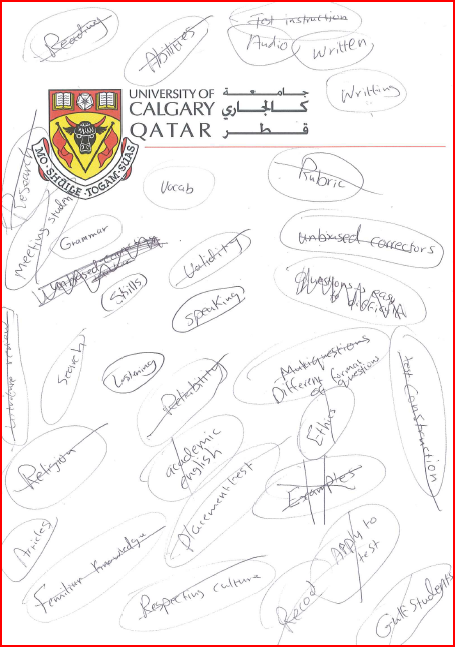 Reading
Abilities
Test instruction
Audio
Written
Writting
UNIVERSITY OF
CALGARY
QATAR
جامعة
كالجاري
قطر
MO·SHÙILE·TOGAM·SUAS
Research
Meeting students
Vocab
Rubric
Grammar
unbiased correctors
Validity
unbiased correctors
Skills
speaking
Questions easy
to difficult
Literature review
Listening
Reliability
Makequestions
Different format
of question
test construction
Ethics
Religion
academic
english
Placement test
Examples
Articles
Familiar knowledge
Respecting culture
Record
Apply to
test
Gulf students